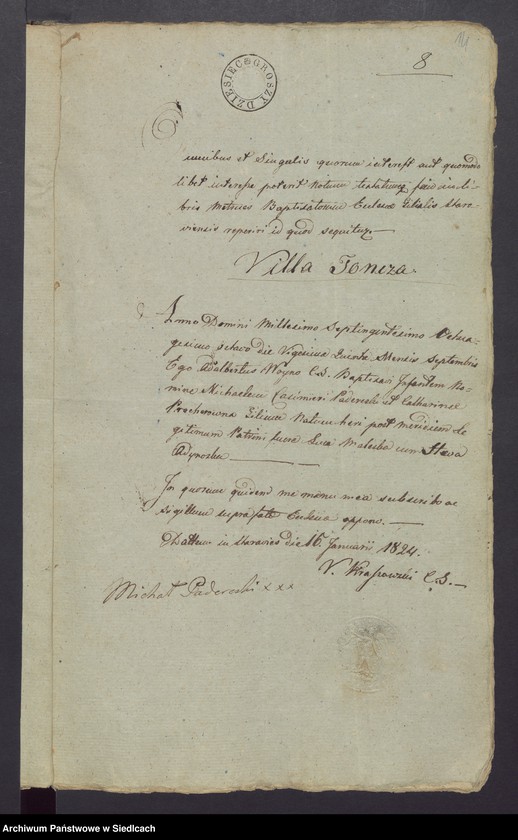 8
DZIESIEC GROSZY
Omnibus et Singulis quorum interest aut quomodo
libet interesse poterit Notum testatumq
bris Metrices Baptisatorum Eclesiæ Filialis
viensis reperiri id quod sequitur
Villa Joncza
Anno Domini Millesimo Septingentesimo
gesimo octavo die Vigesima Mensis Septembris
Ego Adalbertus Woyno C.S. Baptisavi Infantem No-
mine Michaelem Casimiri Paderecki et Catharinæ
Filium Natum heri post meridiem Le
gitimum Patrini fuere Luca cum
In quorum quidem me manu mea subscribo ac
sigillum Eclesiæ appono.
Dattum in die 16 Januarii 1824.
V. C.S.
Michał Paderecki x x x
Archiwum Państwowe w Siedlcach